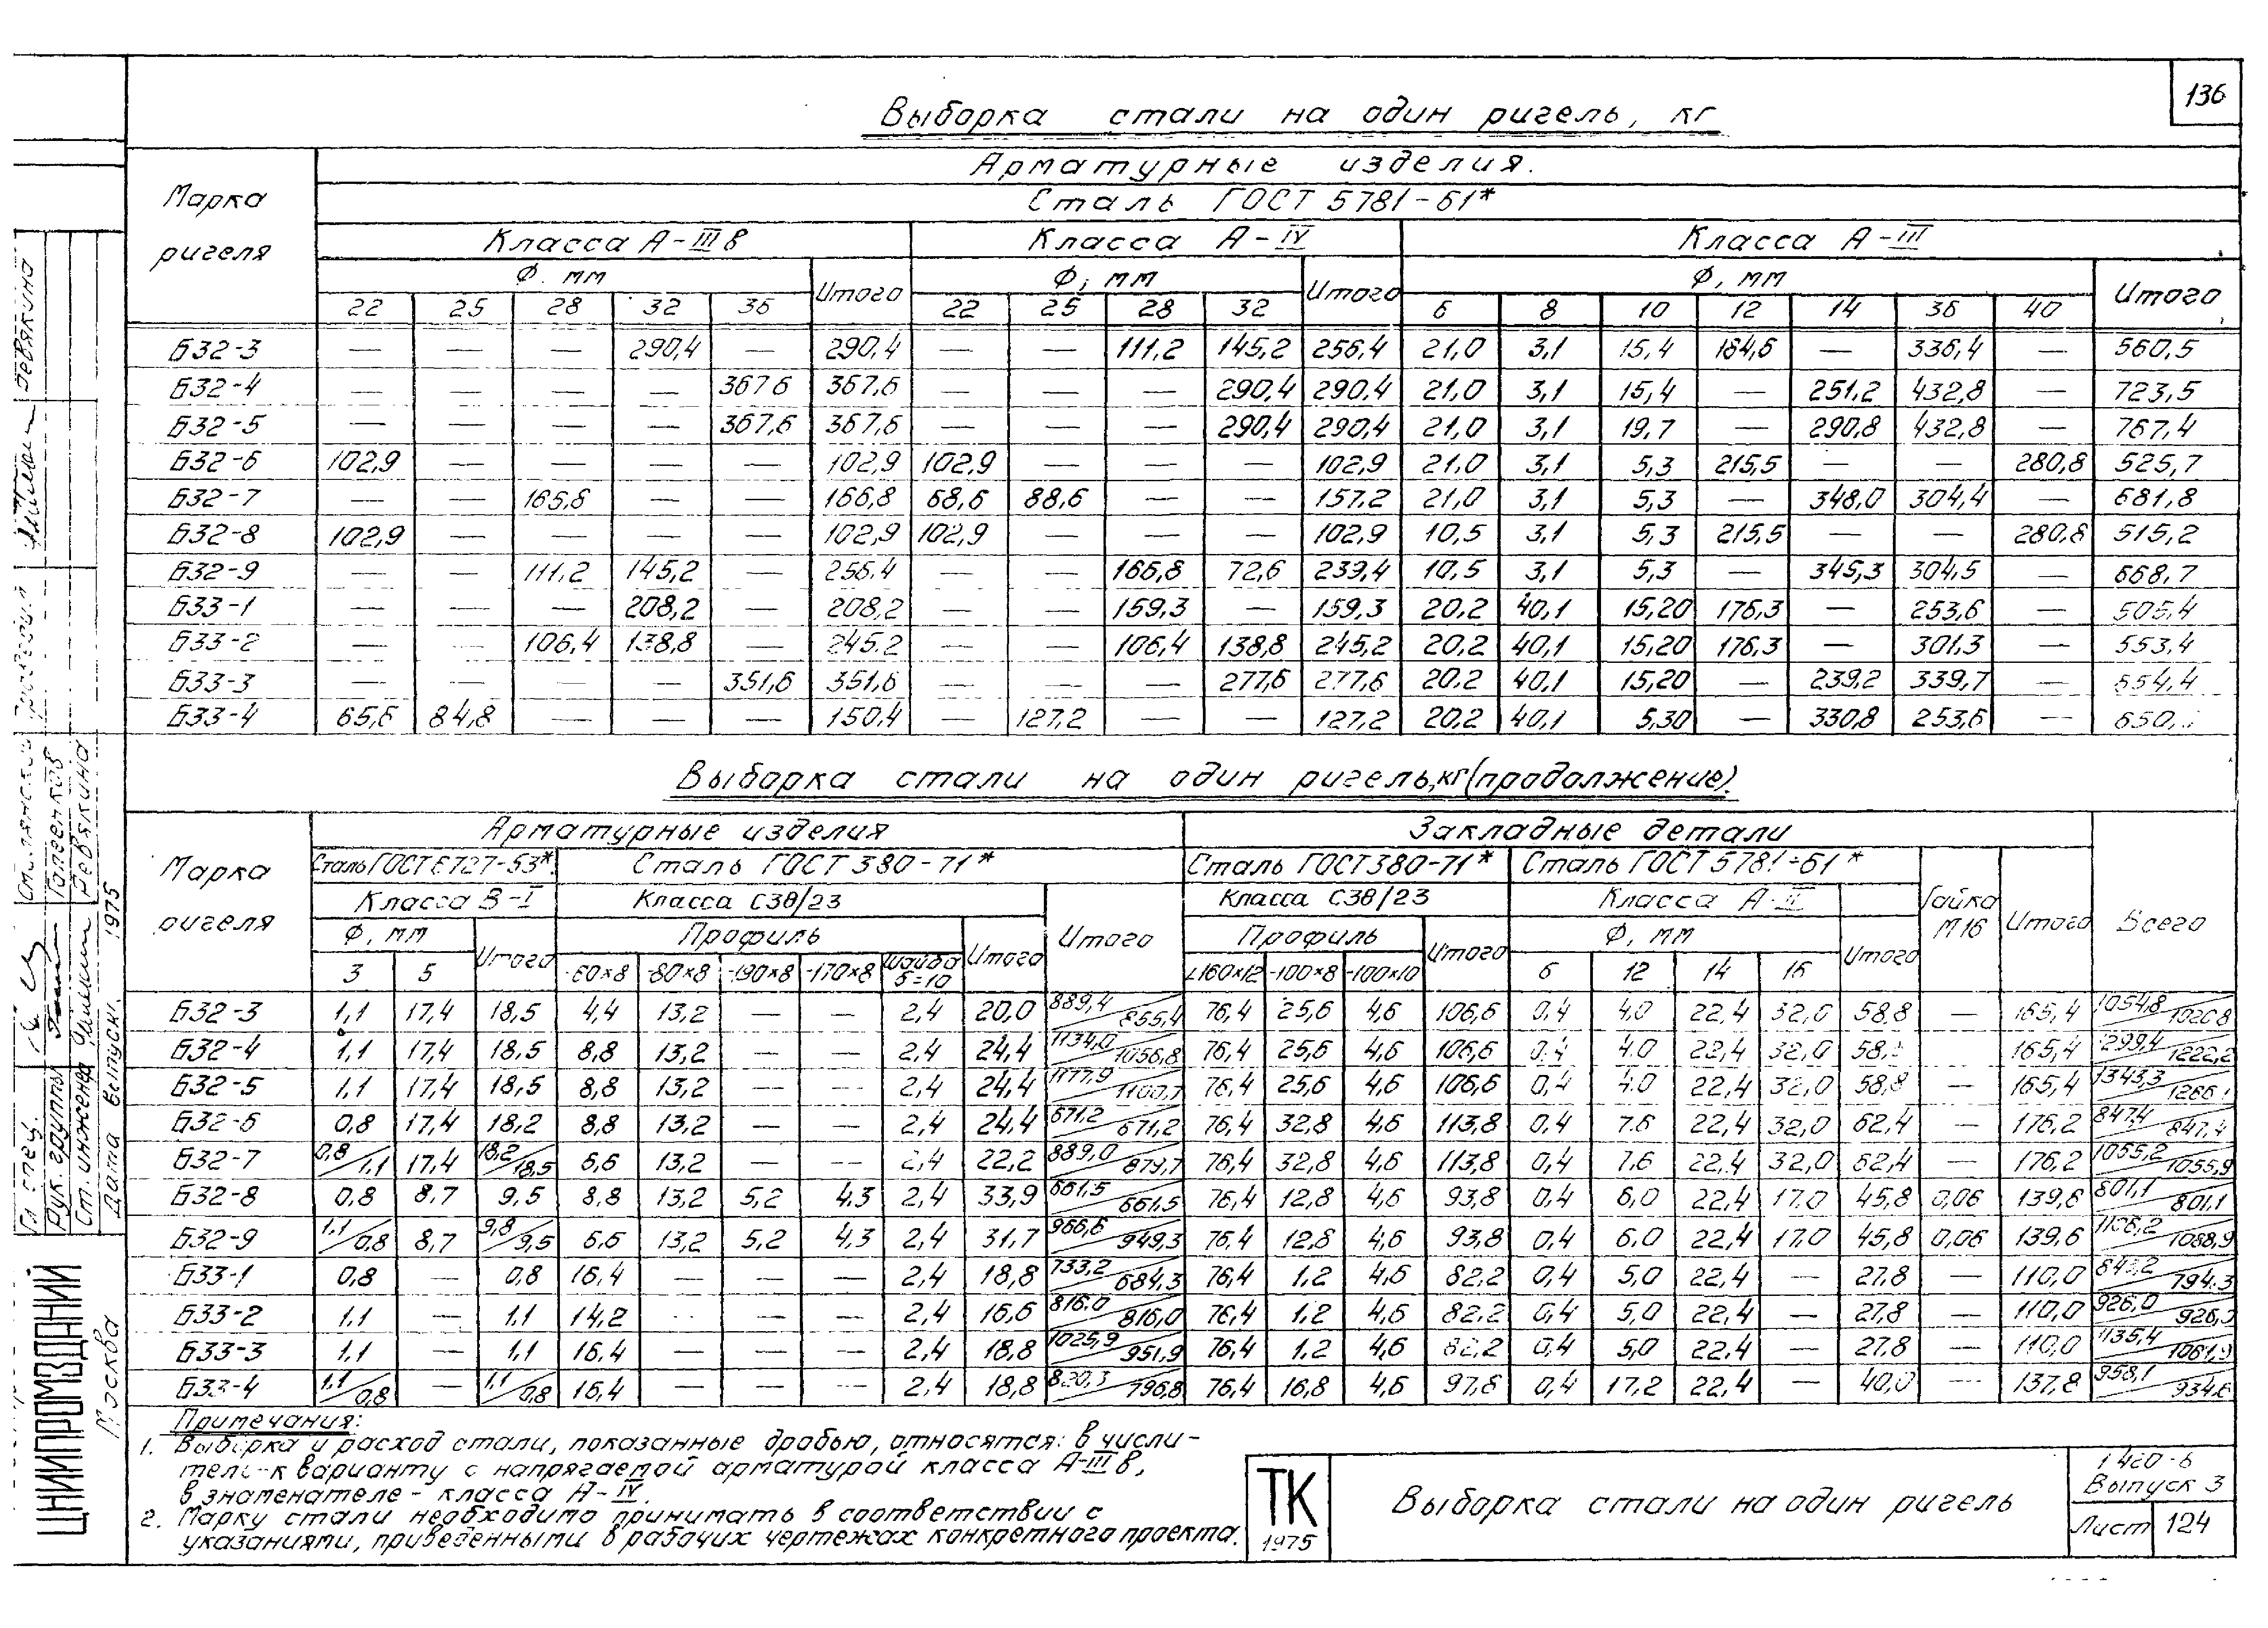 136
Выборка стали на один ригель, кг
Марка ригеля
Арматурные изделия.
Сталь ГОСТ 5781-61*
Класса А-IIIв Класса А-IV Класса А-III
Ф. мм Итого Ф, мм Итого Ф, мм Итого
22 25 28 32 36 22 25 28 32 6 8 10 12 14 36 40
Б32-3 — — — 290,4 — 290,4 — — 111,2 145,2 256,4 21,0 3,1 15,4 184,6 — 336,4 — 560,5
Б32-4 — — — — 367,6 367,6 — — — 290,4 290,4 21,0 3,1 15,4 — 251,2 432,8 — 723,5
Б32-5 — — — — 367,6 367,6 — — — 290,4 290,4 21,0 3,1 19,7 — 290,8 432,8 — 767,4
Б32-6 102,9 — — — — 102,9 102,9 — — — 102,9 21,0 3,1 5,3 215,5 — — 280,8 525,7
Б32-7 — — 166,8 — — 166,8 68,6 88,6 — — 157,2 21,0 3,1 5,3 — 348,0 304,4 — 681,8
Б32-8 102,9 — — — — 102,9 102,9 — — — 102,9 10,5 3,1 5,3 215,5 — — 280,8 515,2
Б32-9 — — 111,2 145,2 — 256,4 — — 166,8 72,6 239,4 10,5 3,1 5,3 — 345,3 304,5 — 668,7
Б33-1 — — — 208,2 — 208,2 — — 159,3 — 159,3 20,2 40,1 15,20 176,3 — 253,6 — 505,4
Б33-2 — — 106,4 138,8 — 245,2 — — 106,4 138,8 245,2 20,2 40,1 15,20 176,3 — 301,3 — 553,4
Б33-3 — — — — 351,6 351,6 — — — 277,6 277,6 20,2 40,1 15,20 — 239,2 339,7 — 654,4
Б33-4 65,6 84,8 — — — 150,4 — 127,2 — — 127,2 20,2 40,1 5,30 — 330,8 253,6 — 650,
Выборка стали на один ригель,кг(продолжение).
Марка ригеля
Арматурные изделия Закладные детали
Сталь ГОСТ 6727-53* Сталь ГОСТ 380-71* Сталь ГОСТ 380-71* Сталь ГОСТ 5781-61*
Класса В-I Класса С38/23 Итого Класса С38/23 Класса А-III Гайка М16 Итого Всего
Ф, мм Итого Профиль Итого Профиль Итого Ф, мм Итого
3 5 -60×8 -80×8 -190×8 -170×8 Шайба δ=10 ∠160×12 -100×8 -100×10 6 12 14 16
Б32-3 1,1 17,4 18,5 4,4 13,2 — — 2,4 20,0 889,4/855,4 76,4 25,6 4,6 106,6 0,4 4,0 22,4 32,0 58,8 — 165,4 1054,8/1020,8
Б32-4 1,1 17,4 18,5 8,8 13,2 — — 2,4 24,4 1134,0/1056,8 76,4 25,6 4,6 106,6 0,4 4,0 22,4 32,0 58,8 165,4 1299,4/1222,2
Б32-5 1,1 17,4 18,5 8,8 13,2 — — 2,4 24,4 1177,9/1100,7 76,4 25,6 4,6 106,6 0,4 4,0 22,4 32,0 58,8 — 165,4 1343,3/1266,1
Б32-6 0,8 17,4 18,2 8,8 13,2 — — 2,4 24,4 671,2/671,2 76,4 32,8 4,6 113,8 0,4 7,6 22,4 32,0 62,4 — 176,2 847,4/847,4
Б32-7 0,8/1,1 17,4 18,2/18,5 6,6 13,2 — — 2,4 22,2 889,0/879,7 76,4 32,8 4,6 113,8 0,4 7,6 22,4 32,0 62,4 — 176,2 1065,2/1055,9
Б32-8 0,8 8,7 9,5 8,8 13,2 5,2 4,3 2,4 33,9 661,5/661,5 76,4 12,8 4,6 93,8 0,4 6,0 22,4 17,0 45,8 0,06 139,6 801,1/801,1
Б32-9 1,1/0,8 8,7 9,8/9,5 6,6 13,2 5,2 4,3 2,4 31,7 966,6/949,3 76,4 12,8 4,6 93,8 0,4 6,0 22,4 17,0 45,8 0,06 139,6 1106,2/1088,9
Б33-1 0,8 — 0,8 16,4 — — — 2,4 18,8 733,2/684,3 76,4 1,2 4,6 82,2 0,4 5,0 22,4 — 27,8 — 110,0 843,2/794,3
Б33-2 1,1 — 1,1 14,2 — — 2,4 16,6 816,0/816,0 76,4 1,2 4,6 82,2 0,4 5,0 22,4 — 27,8 — 110,0 926,0/926,0
Б33-3 1,1 — 1,1 16,4 — — — 2,4 18,8 1025,9/951,9 76,4 1,2 4,6 82,2 0,4 5,0 22,4 — 27,8 — 110,0 1135,4/1061,9
Б33-4 1,1/0,8 — 1,1/0,8 16,4 — — — 2,4 18,8 820,3/796,8 76,4 16,8 4,6 97,8 0,4 17,2 22,4 — 40,0 — 137,8 958,1/934,6
Примечания:
1. Выборка и расход стали, показанные дробью, относятся: в числи-
тель-к варианту с напрягаемой арматурой класса А-IIIв,
в знаменателе - класса А-IV.
2. Марку стали необходимо принимать в соответствии с
указаниями, приведенными в рабочих чертежах конкретного проекта.
ТК
1975
Выборка стали на один ригель
1.420-6
Выпуск 3
Лист 124
Гл. спец.
Рук. группы Галенков
Ст. инженер Ревякина
Дата выпуск. 1975
Ревякина
ЦНИИПРОМЗДАНИЙ
Москва